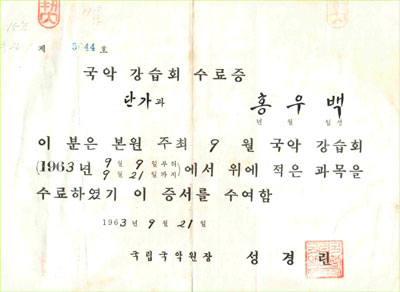 제 5644호
국악 강습회 수료증
단가과 홍우백
년 월 일생
이 분은 본원 주최 9월 국악 강습회
(1963년 9월 9일부터 9월 21일까지)에서 위에 적은 과목을
수료하였기 이 증서를 수여함
1963년 9월 21일
국립국악원장 성경린